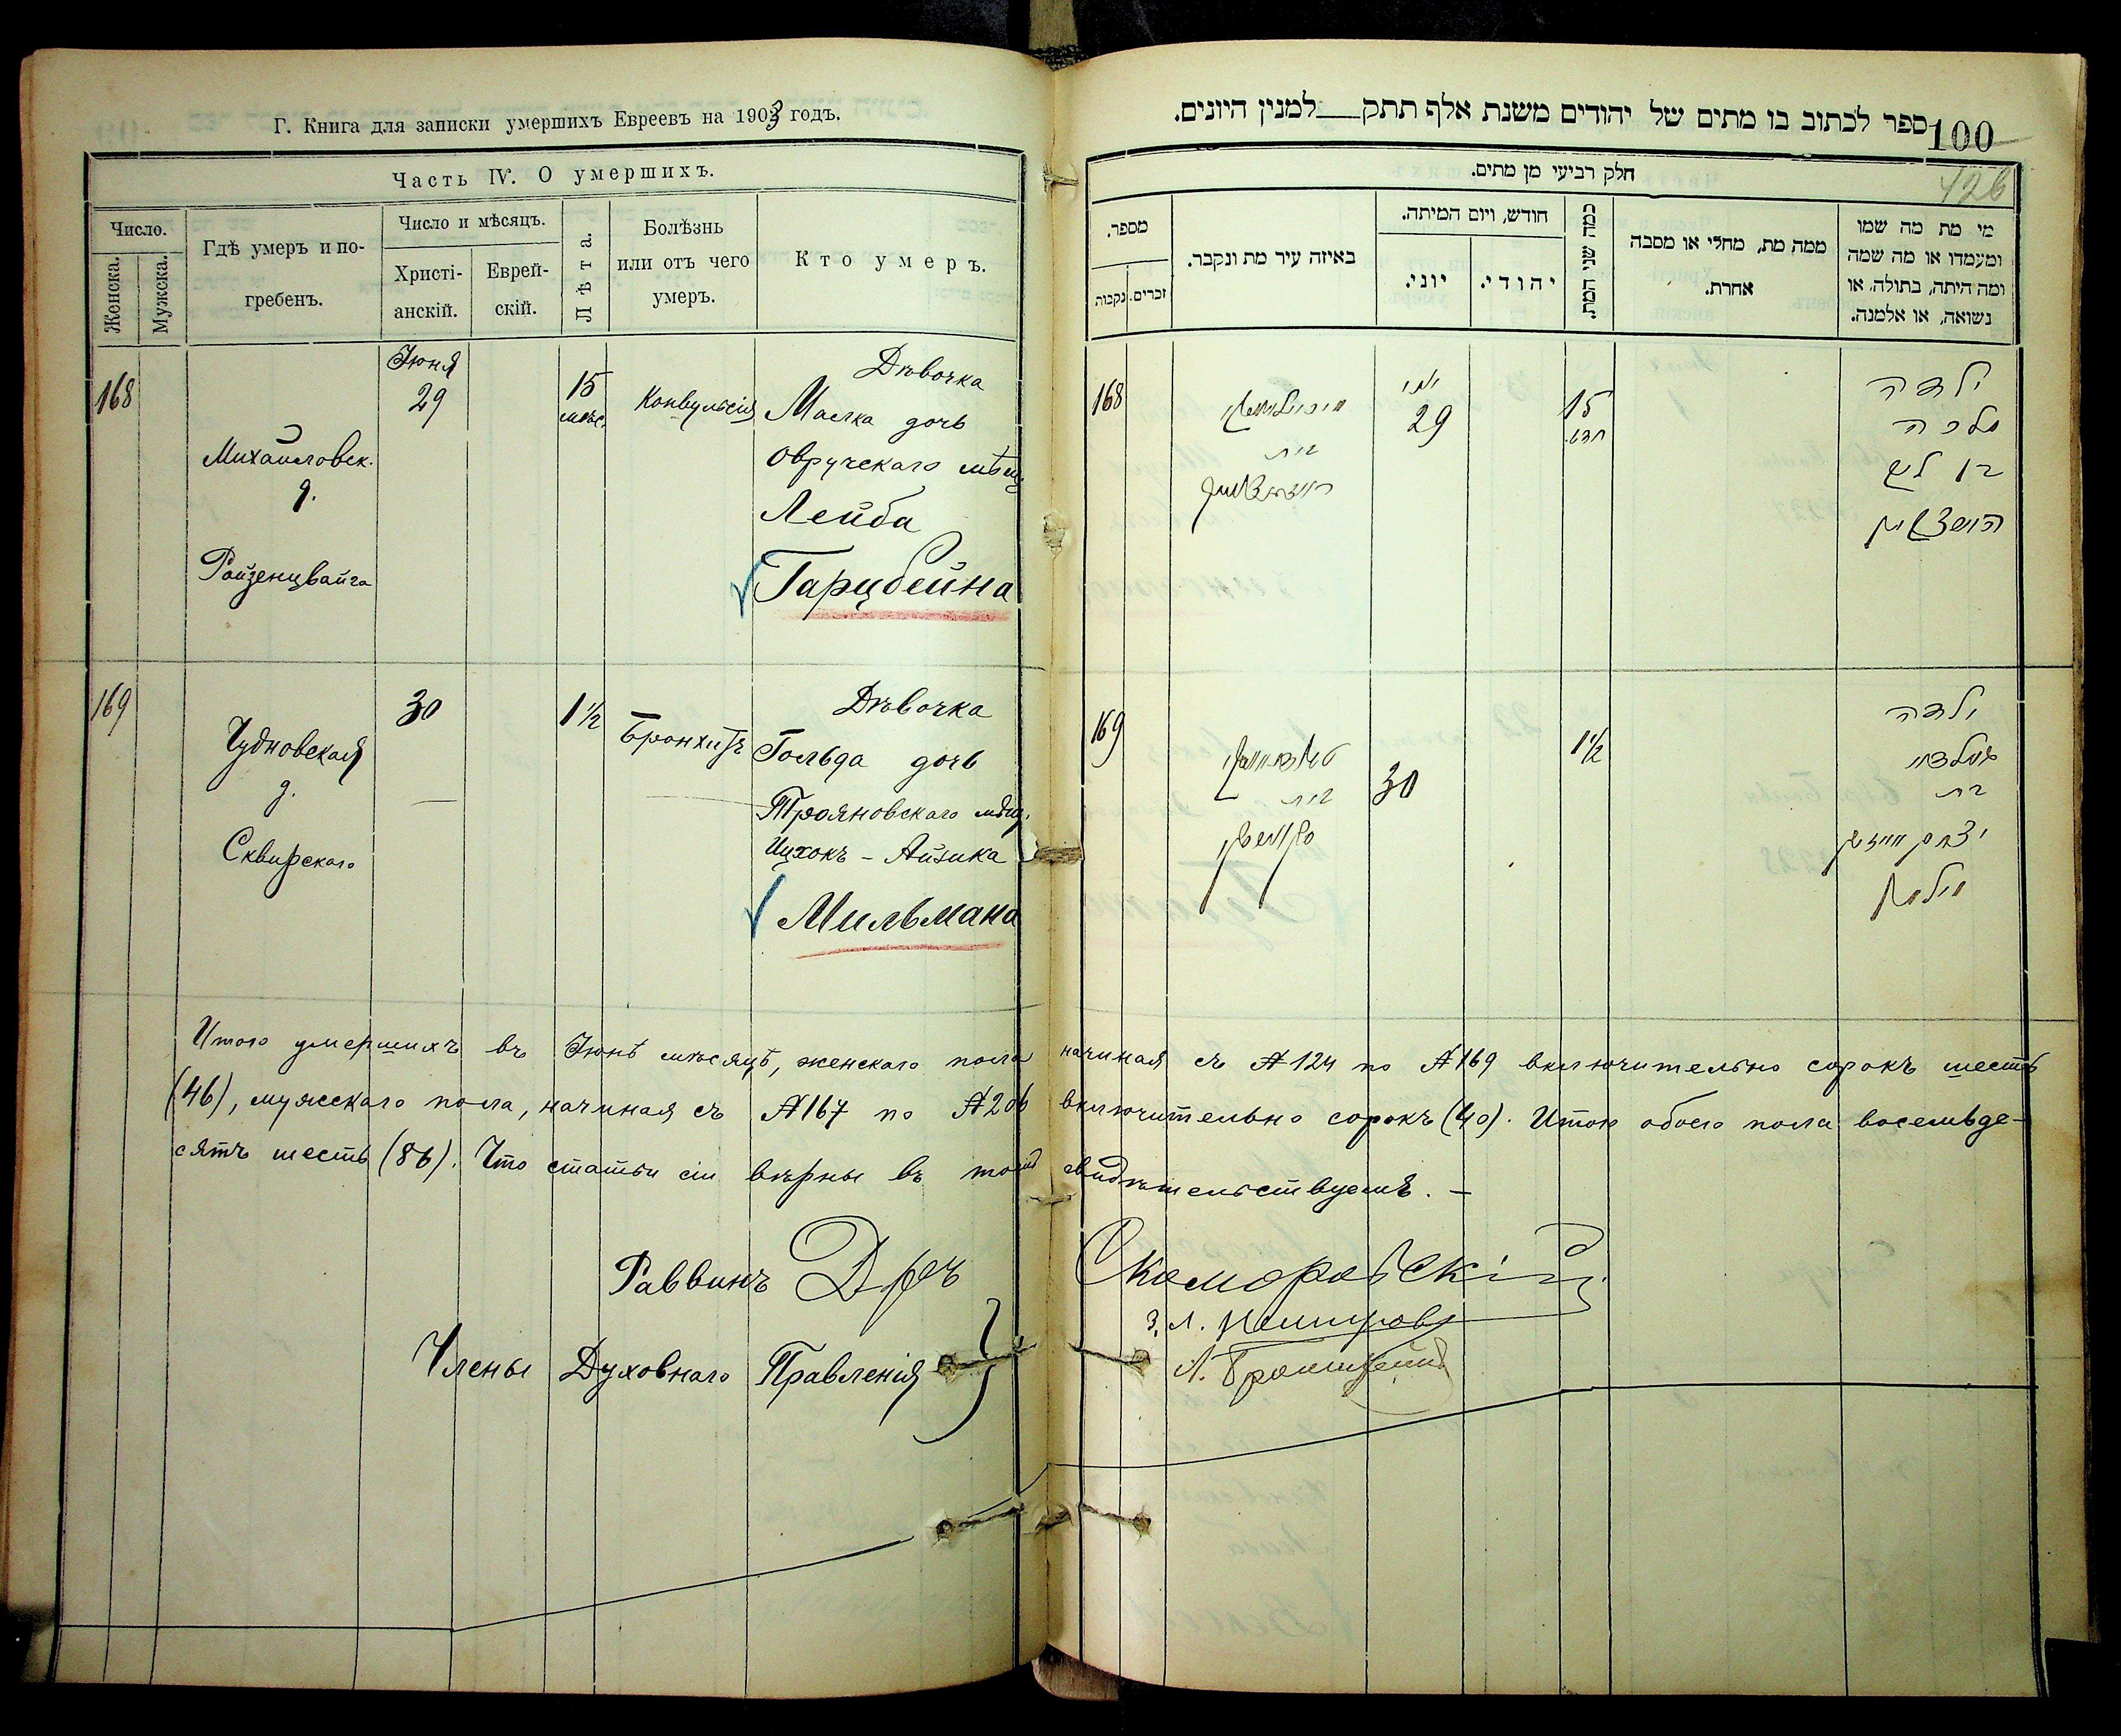 Г. Книга для записки умершихъ Евреевъ на 1903 годъ.
Часть IV. О умершихъ.
Число.
Женска.
Мужска.
Гдѣ умеръ и по-
гребенъ.
Число и мѣсяцъ.
Христі-
анскій.
Еврей-
скій.
Лѣта.
Болѣзнь
или отъ чего
умеръ.
Кто умеръ.
168
Михайловск.
д.
Райзенцвайга
Іюня
29
15
мѣс.
Конвульсія
Дѣвочка
Малка дочь
Овручскаго мѣщ.
Лейба
Гарцбейна
169
Чудновская
д.
Сквирскаго
30
1 1/2
Бронхитъ
Дѣвочка
Гольда дочь
Трояновскаго мѣщ.
Ицхокъ - Айзика
Мильмана
ספר לכתוב בו מתים של יהודים משנת אלף תתק__למנין היונים.
100
126
חלק רביעי מן מתים.
מספר.
זכרים.
נקבות
באיזה עיר מת ונקבר.
חודש, ויום המיתה.
יוני.
יהודי.
כמה שני המת.
ממה מת, מחלי או מסבה
אחרת.
מי מת מה שמו
ומעמדו או מה שמה
ומה היתה, בתולה, או
נשואה, או אלמנה.
168
בית
יוני
29
15
חדש
ילדה
מלכה
169
בית
30
1 1/2
ילדה
גאלדא
בת
יצחק אייזיק
מילמאן
Итого умершихъ въ Іюнѣ мѣсяцѣ, женскаго пола начиная съ №124 по №169 включительно сорокъ шесть
(46), мужскаго пола, начиная съ №167 по №206 включительно сорокъ (40). Итого обоего пола восемьде-
сятъ шесть (86). Что статьи сіи вѣрны въ томъ свидѣтельствуемъ. —
Раввинъ Д-ръ Скоморовскій
Члены Духовнаго Правленія